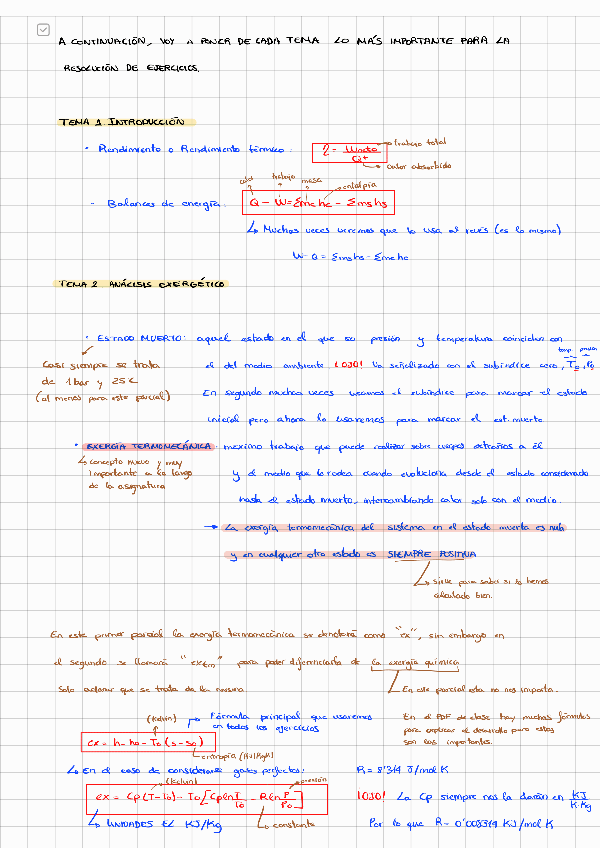 A CONTINUACIÓN, VOY A PONER DE CADA TEMA LO MÁS IMPORTANTE PARA LA
RESOLUCIÓN DE EJERCICIOS.
TEMA 1 INTRODUCCIÓN
• Rendimiento o Rendimiento térmico: η = Wneto / Q+
trabajo total
calor absorbido
calor trabajo masa entalpía
- Balances de energía: Q - W = Σmchc - Σmshs
↳ Muchas veces veremos que lo usa al revés (es lo mismo)
W - Q = Σmshs - Σmchc
TEMA 2 ANÁLISIS EXERGÉTICO
• ESTADO MUERTO: aquel estado en el que su presión y temperatura coinciden con
temp. presión
el del medio ambiente ¡OJO! Va señalizado con el subíndice cero, T0, P0
Casi siempre se trata
de 1 bar y 25 C
(al menos para este parcial)
En segundo muchas veces usamos el subíndice para marcar el estado
inicial pero ahora lo usaremos para marcar el est. muerto
• EXERGÍA TERMOMECÁNICA: maximo trabajo que puede realizar sobre cuerpos extraños a él
↳ concepto nuevo y muy
importante a lo largo
de la asignatura
y el medio que lo rodea cuando evoluciona desde el estado considerado
hasta el estado muerto, intercambiando calor solo con el medio.
→ La exergía termomecánica del sistema en el estado muerto es nula
y en cualquier otro estado es SIEMPRE POSITIVA
↳ Sirve para saber si lo hemos
calculado bien.
En este primer parcial la exergía termomecánica se denotará como "ex", sin embargo en
el segundo se llamará "extm" para poder diferenciarla de la exergía química
Solo aclarar que se trata de la misma
↳ En este parcial esta no nos importa.
(Kelvin)
Fórmula principal que usaremos
en todos los ejercicios
ex = h - h0 - T0 (s - s0)
entropía (KJ/KgK)
En el PDF de clase hay muchas fórmulas
para explicar el desarrollo pero estas
son las importantes.
↳ En el caso de considerarse gases perfectos:
R = 8'314 J/mol K
(Kelvin) presión
ex = Cp(T-T0) - T0 [Cp ln T/T0 - R ln P/P0]
¡OJO! La Cp siempre nos la darán en KJ/K·Kg
↳ UNIDADES EL KJ/Kg
↳ constante
Por lo que R = 0'008314 KJ/mol K